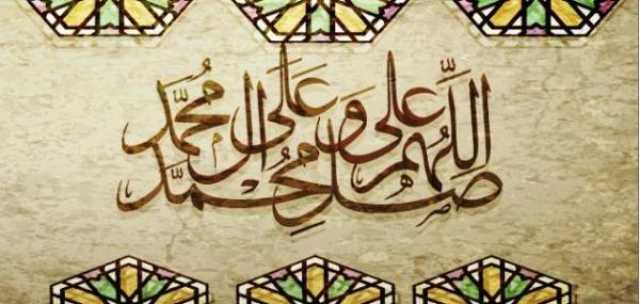 اللّهم صل على محمد وعلى آل محمد